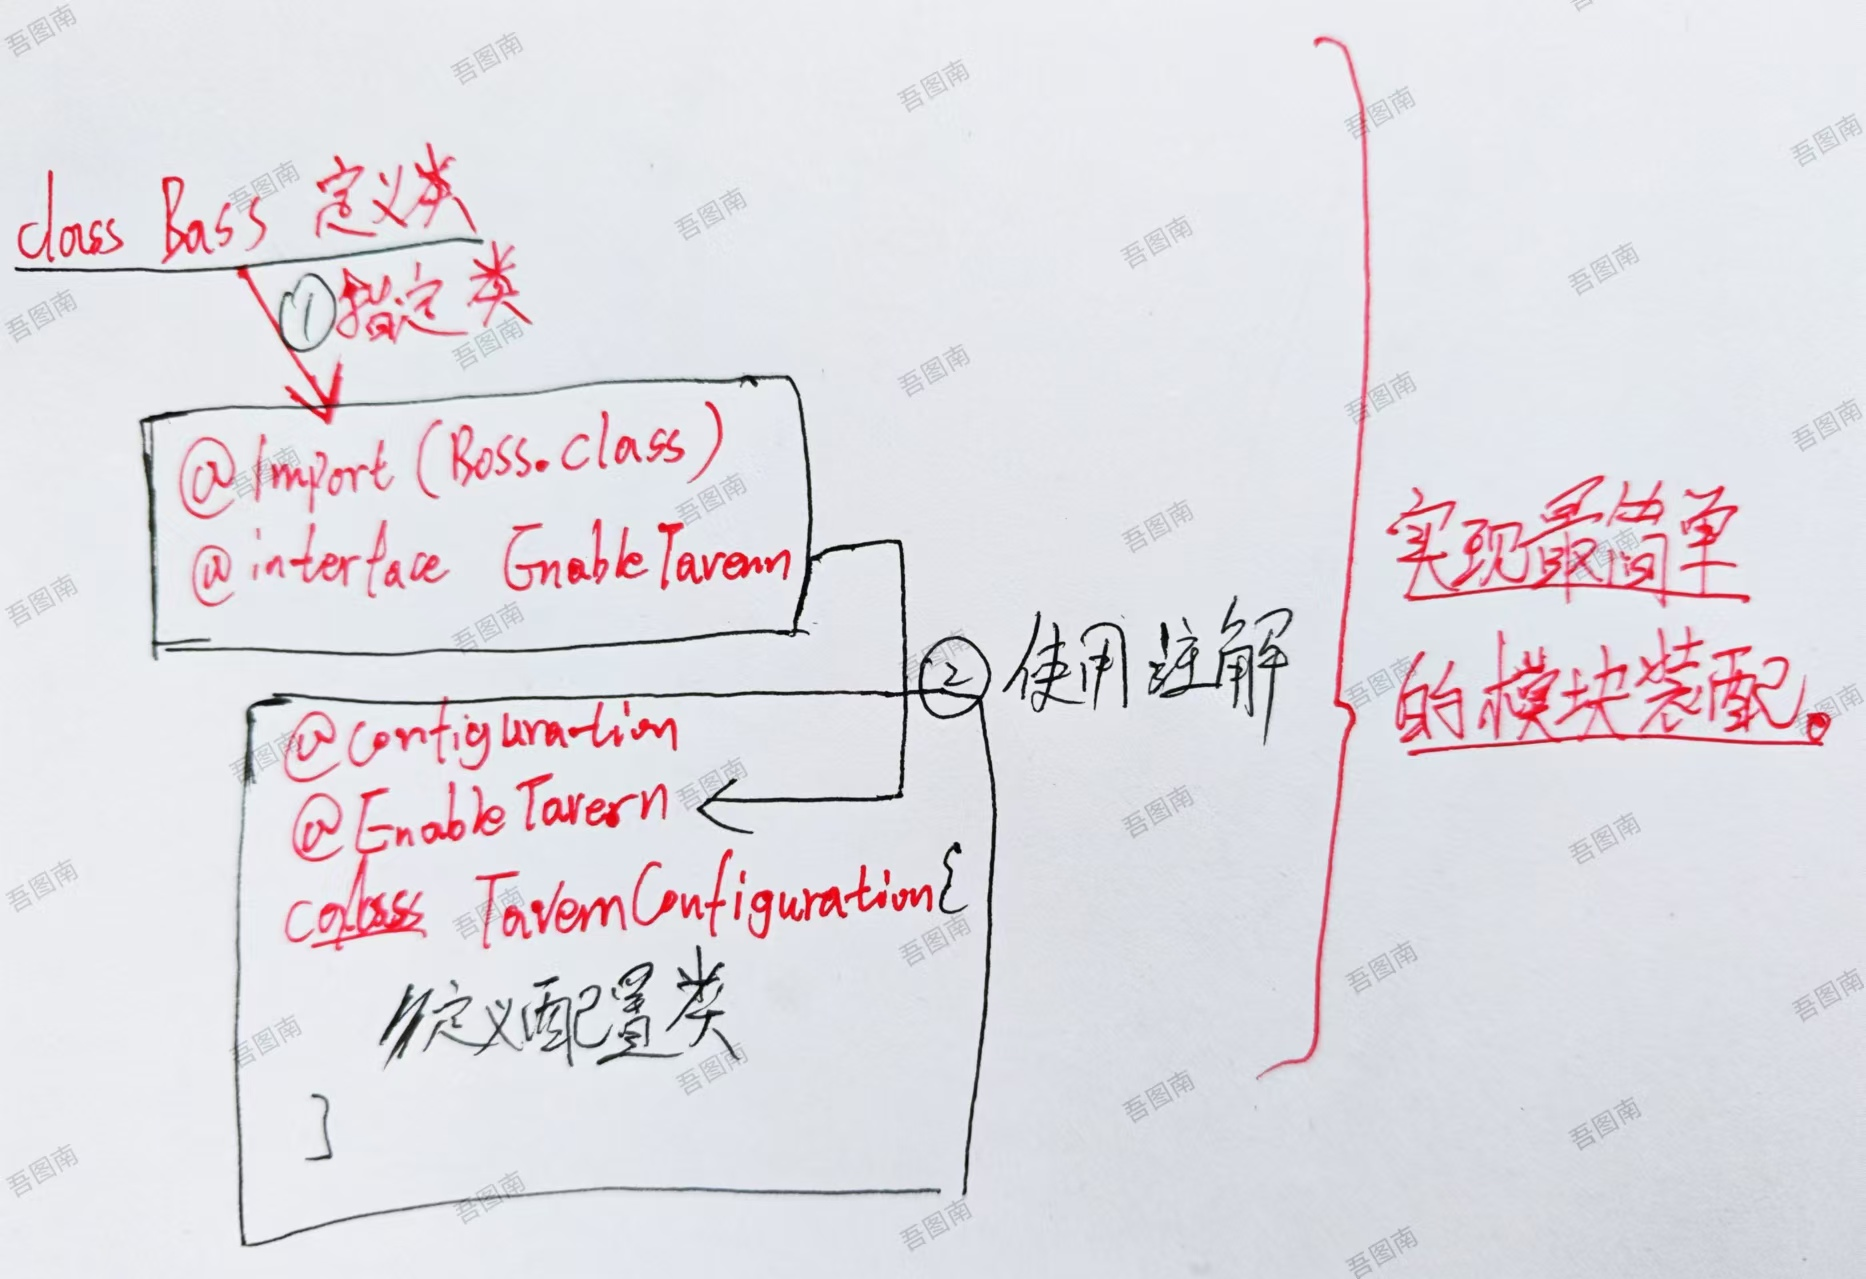 class Boss 定义类
①指定类
@Import (Boss.class)
@interface EnableTavern
②使用注解
@configuration
@EnableTavern
class TavernConfiguration{
//定义配置类
}
实现最简单
的模块装配。
吾图南